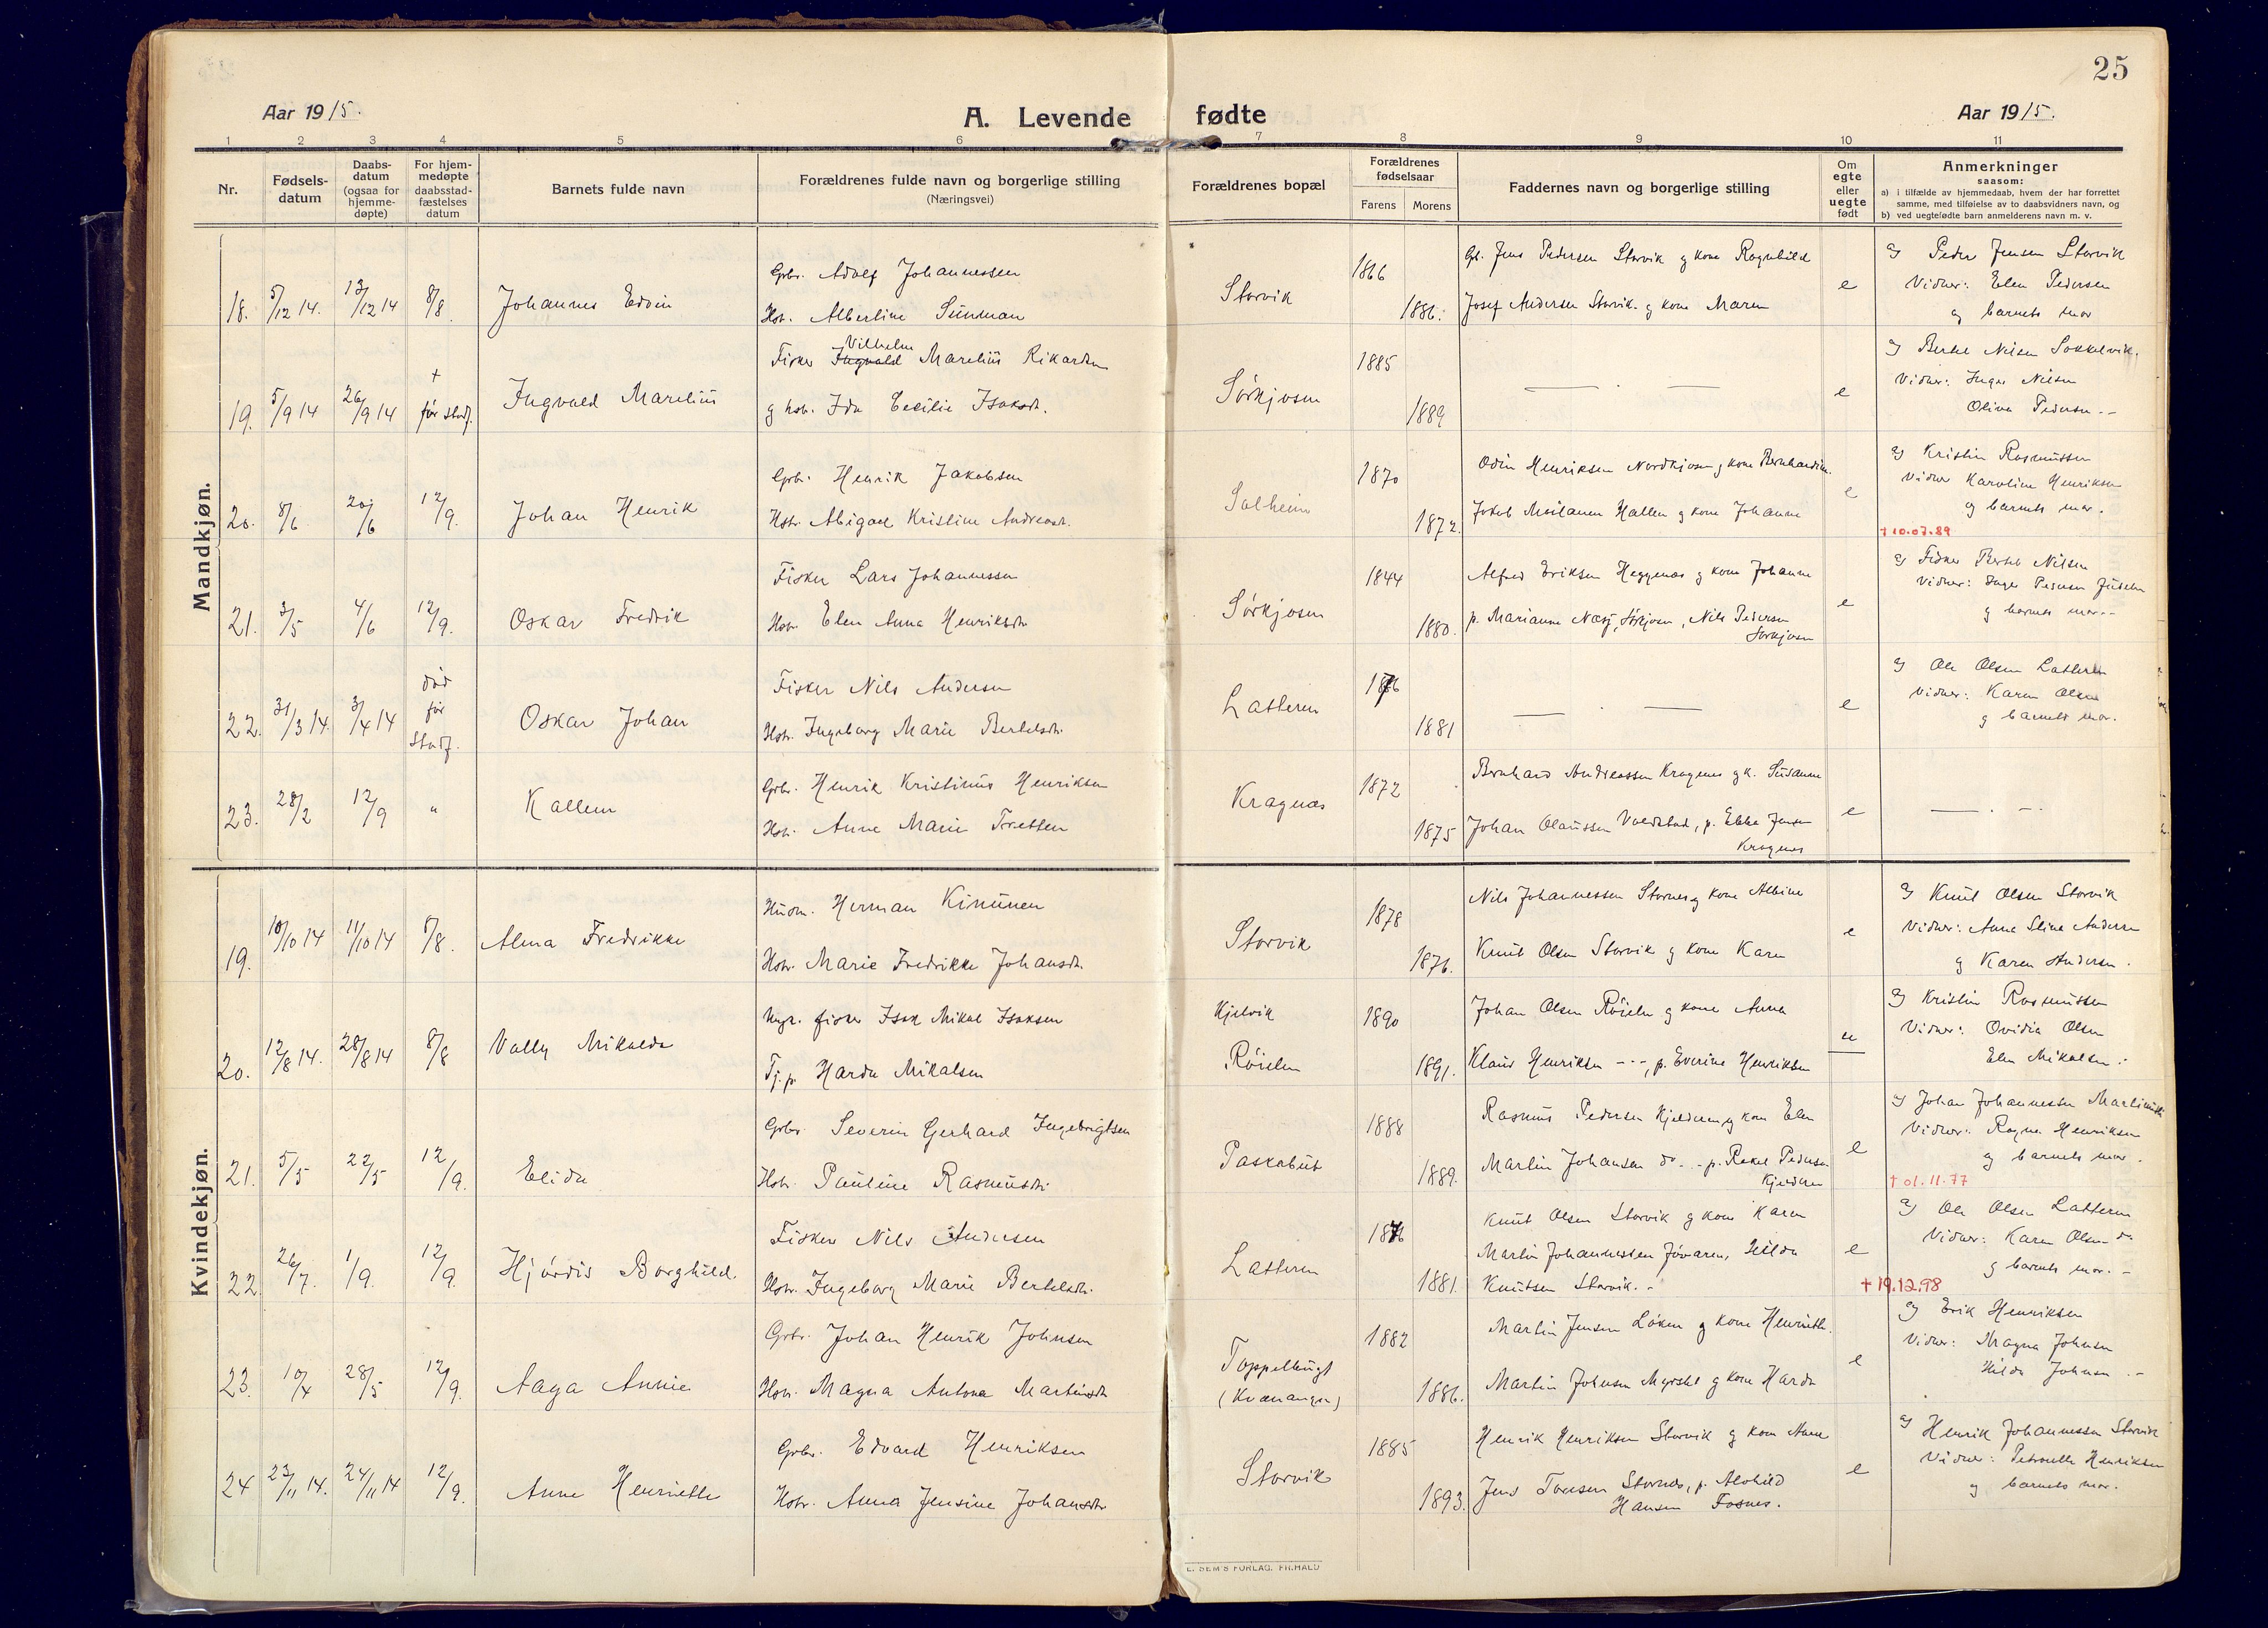 25
Aar 1915.
A. Levende fødte
Aar 1915.
1 2 3 4 5 6 7 8 9 10 11
Nr.
Fødsels-
datum
Daabs-
datum
(ogsaa for
hjemme-
døpte)
For hjem-
medøpte
daabsstad-
fæstelses
datum
Barnets fulde navn
Forældrenes fulde navn og borgerlige stilling
(Næringsvei)
Forældrenes bopæl
Forældrenes
fødselsaar
Farens Morens
Faddernes navn og borgerlige stilling
Om
egte
eller
uegte
født
Anmerkninger
saasom:
a) i tilfælde av hjemmedaab, hvem der har forrettet
samme, med tilføielse av to daabsvidners navn, og
b) ved uegtefødte barn anmelderens navn m. v.
Mandkjøn.
18. 5/12 14. 13/12 14 8/8. Johannes Edvin
Grbr. Adolf Johannessen
Hstr. Albertine Sundman
Storvik
1866
1886.
Gbr. Jens Pedersen Storvik g kone Ragnhild
Josef Andersen Storvik g kone Maren
e
a) Peder Jensen Storvik
Vidner: Elen Pedersen
og barnets mor
19. 5/9 14 26/9 14 † før stadf. Ingvald Marelius
Vilhelm
Fisker Ingvald Marelius Rikardsen
g hstr. Ida Cecilie Isaksdtr.
Sørkjosen
1885
1889
e
a) Bertel Nilsen Sokkelvik.
Vidner: Inger Nilsen
Oline Pedersen --
20. 8/6 20/6 12/9. Johan Henrik
Grbr. Henrik Jakobsen
Hstr. Abigael Kristine Andreasdtr.
Solheim
1870
1872.
Odin Henriksen Nordkjosen g kone Bernhardine
Jakob Meilanen Hallen g kone Johanne
e
a) Kristin Rasmussen
Vidner Karoline Henriksen
og barnets mor.
† 10.07.89
21. 3/5 4/6 12/9. Oskar Fredrik
Fisker Lars Johannessen
Hstr. Elen Anna Henriksdtr
Sørkjosen
1844
1880.
Alfred Eriksen Heggenæs g kone Johanne
p. Marianne Næsj, Sørkjosen, Nils Pedersen
Sørkjosen
e
a) Fisker Bertel Nilsen
Vidner: Inger Pedersen
g barnets mor --
22. 31/3 14. 3/4 14 død før stadf. Oskar Johan
Fisker Nils Andersen
Hstr. Ingeborg Marie Bertelsdtr.
Latteren
1876
1881
e
a) Ole Olsen Latteren
Vidner: Karen Olsen
g barnets mor.
23. 28/2 12/9 " Kallem
Grbr. Henrik Kristinus Henriksen
Hstr. Anne Marie Tretten
Kragnæs
1872
1875
Bernhard Andreassen Kragnes g k. Susanne
Johan Olaussen Voldstad, p. Ebba Jensen
Kragnes
e
Kvindekjøn.
19. 10/10 14 11/10 14 8/8. Alma Fredrikke
Husm. Herman Kinunen
Hstr. Marie Fredrikke Johansdtr.
Storvik
1878
1876.
Nils Johannessen Stornes g kone Albine
Knut Olsen Storvik g kone Karen
e
a) Knut Olsen Storvik
Vidner: Anne Stine Andersen
g Karen Andersen.
20. 12/8 14. 28/8 14 8/8 Vally Mikalda
Ungk. fisker Isak Mikal Isaksen
Tj.p. Harda Mikalsen
Kjelvik
Røielen
1890
1891.
Johan Olsen Røielen g kone Anna
Klaus Henriksen ---, p. Everine Henriksen
u
a) Kristin Rasmussen
Vidner: Ovidia Olsen
Elen Mikalsen.
21. 5/5 22/5 12/9. Elida
Grbr. Severin Gerhard Ingebrigtsen
Hstr. Pauline Rasmusdtr.
Paskabut
1888
1889.
Rasmus Pedersen Kjelderen g kone Elen
Martin Johansen do. p. Rakel Pedersen
Kjelderen
e
a) Johan Johannessen
Vidner: Ragna Henriksen
g barnets mor.
† 01.11.77
22. 26/7. 1/9. 12/9. Hjørdis Borghild.
Fisker Nils Andersen
Hstr. Ingeborg Marie Bertelsdtr.
Latteren
1876
1881.
Knut Olsen Storvik g kone Karen
Martin Johannessen, Hilda
Knutsen Storvik. -
e
a) Ole Olsen Latteren
Vidner: Karen Olsen do
g barnets mor. -
† 19.12.98
23. 10/4 28/5 12/9. Aaga Annie
Grbr. Johan Henrik Johnsen
Hstr. Magna Antona Martinsdtr
Toppelbugt
(Kvænangen)
1882
1886.
Martin Jensen Løken g kone Henriette.
Martin Johnsen g kone Harda
e
a) Erik Henriksen
Vidner: Magna Johnsen
Hilda Johnsen. -
24 23/11 14. 24/11 14 12/9. Anne Henriette
Grbr. Edvard Henriksen
Hstr. Anna Jensine Johansdtr
Storvik
1885
1893.
Henrik Henriksen Storvik g kone Anne
Jens Torsen Stornes, p. Alvhild
Hansen Fosnes.
e
a) Henrik Johannessen Storvik
Vidner: Petronelle Henriksen
og barnets mor.
E. SEM'S FORLAG. FR.HALD